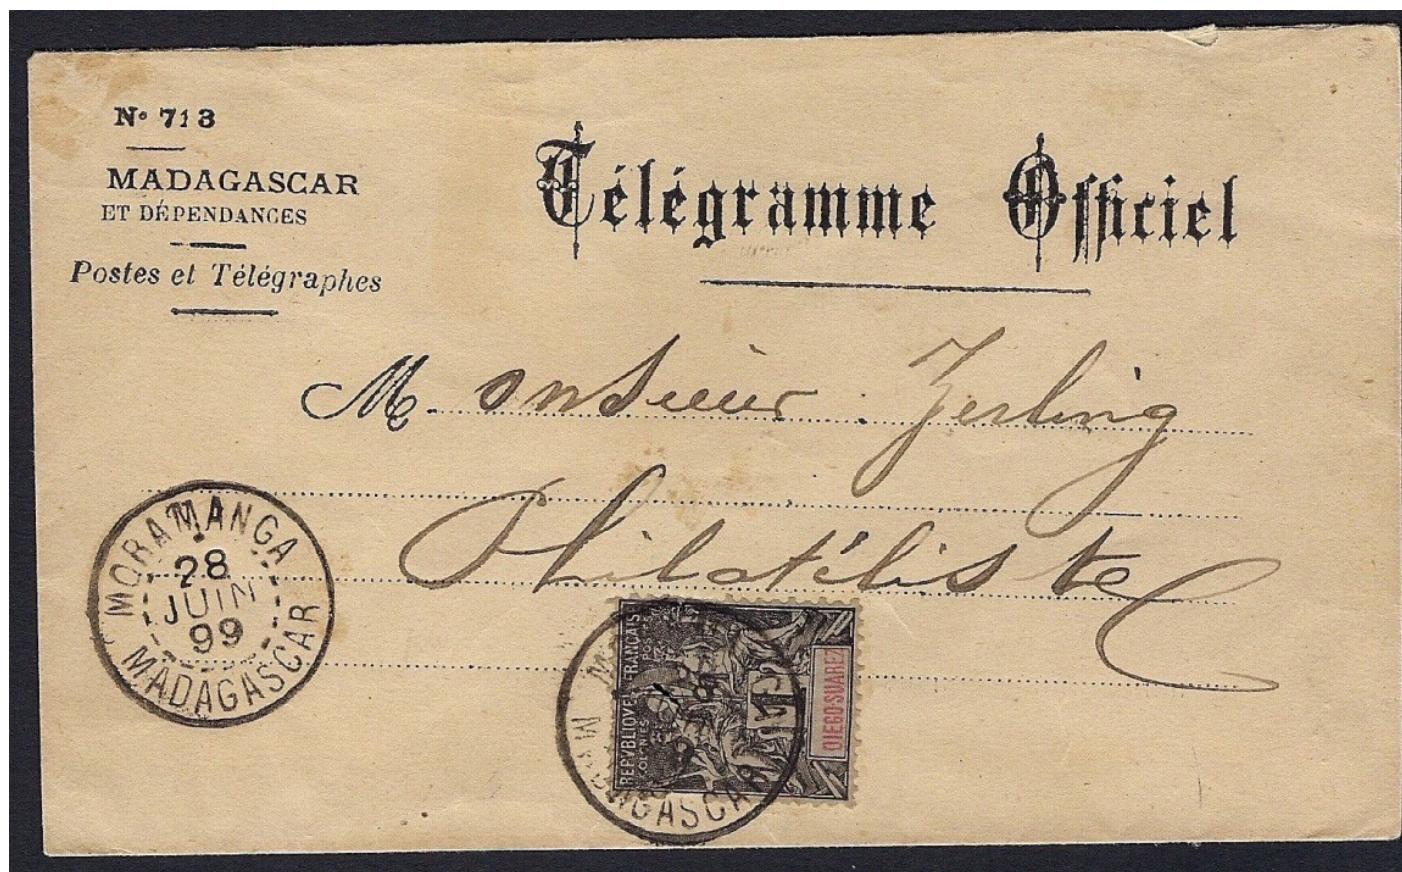 No 713
MADAGASCAR
ET DÉPENDANCES
Postes et Télégraphes
Télégramme Officiel
M. onsieur Zerling
Philatéliste
MORAMANGA
28
JUIN
99
MADAGASCAR
REPVBLIQVE FRANÇAISE
COLONIES POSTES
1
DIEGO-SUAREZ
MADAGASCAR